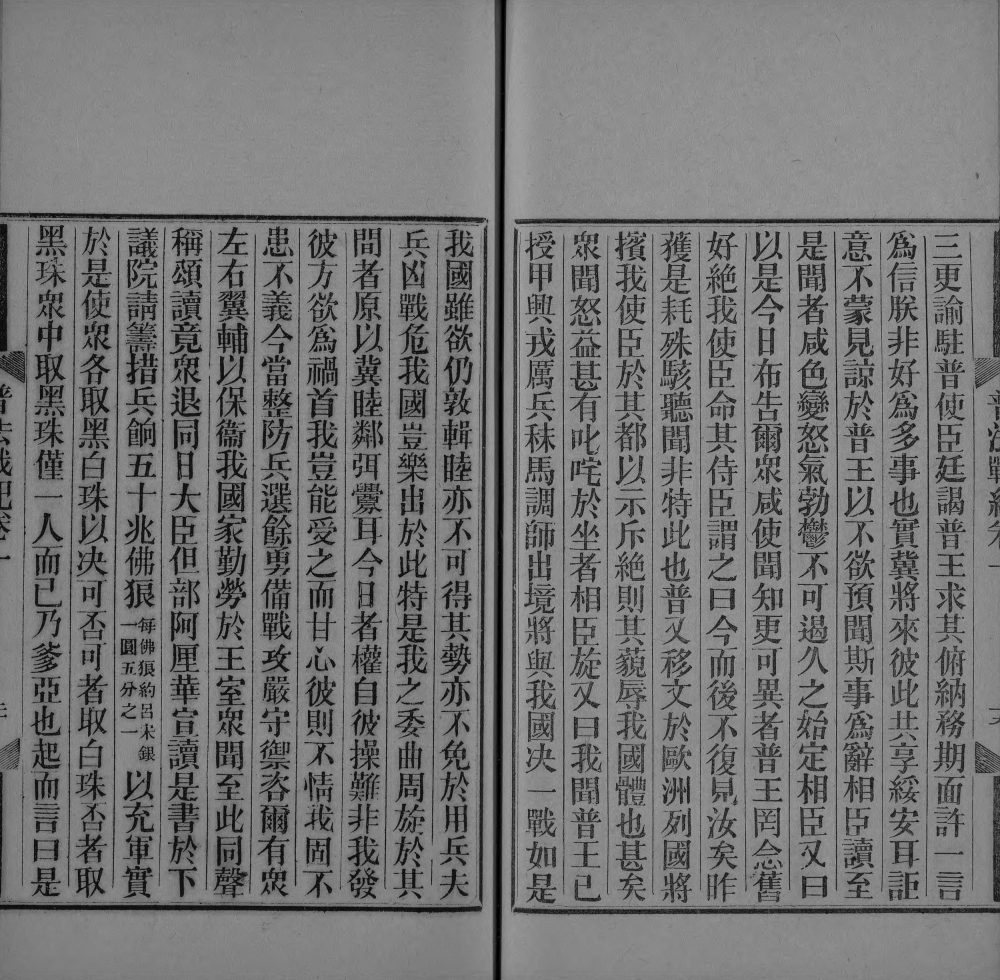 三更諭駐普使臣廷謁普王求其俯納務期面許一言
爲信朕非好爲多事也實冀將來彼此共享綏安耳詎
意不蒙見諒於普王以不欲預聞斯事爲辭相臣讀至
是聞者咸色變怒氣勃鬱不可遏久之始定相臣又曰
以是今日布告爾眾咸使聞知更可異者普王罔念舊
好絕我使臣命其侍臣謂之曰今而後不復見汝矣昨
獲是耗殊駭聽聞非特此也普又移文於歐洲列國將
擯我使臣於其都以示斥絕則其藐辱我國體也甚矣
眾聞怒益甚有叱咤於坐者相臣旋又曰我聞普王已
授甲興戎厲兵秣馬調師出境將與我國決一戰如是
普法戰紀卷一
我國雖欲仍敦輯睦亦不可得其勢亦不免於用兵夫
兵凶戰危我國豈樂出於此特是我之委曲周旋於其
間者原以冀睦鄰弭釁耳今日者權自彼操難非我發
彼方欲爲禍首我豈能受之而甘心彼則不情我固不
患不義今當整防兵選餘勇備戰攻嚴守禦咨爾有眾
左右翼輔以保衞我國家勤勞於王室眾聞至此同聲
稱頌讀竟眾退同日大臣但部阿厘華宣讀是書於下
議院請籌措兵餉五十兆佛狼每佛狼約呂宋銀一圓五分之一以充軍實
於是使眾各取黑白珠以決可否可者取白珠否者取
黑珠眾中取黑珠僅一人而已乃爹亞也起而言曰是
普法戰紀卷一